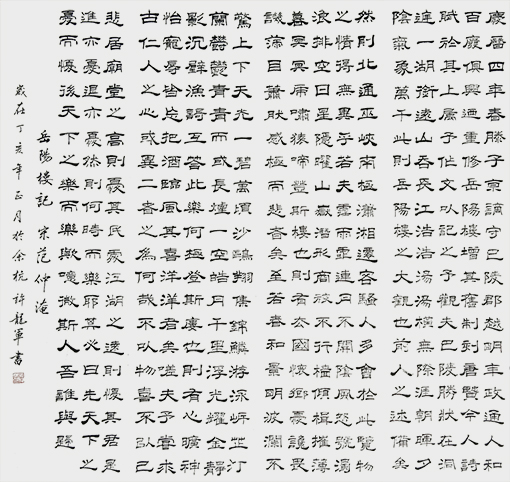 慶曆四年春滕子京謫守巴陵郡越明年政通人和
百廢俱興乃重修岳陽樓增其舊制刻唐賢今人詩
賦於其上屬予作文以記之予觀夫巴陵勝狀在洞
庭一湖銜遠山吞長江浩浩湯湯橫無際涯朝暉夕
陰氣象萬千此則岳陽樓之大觀也前人之述備矣
然則北通巫峽南極瀟湘遷客騷人多會於此覽物
之情得無異乎若夫霪雨霏霏連月不開陰風怒號濁
浪排空日星隱曜山岳潛形商旅不行檣傾楫摧薄
暮冥冥虎嘯猿啼登斯樓也則有去國懷鄉憂讒畏
譏滿目蕭然感極而悲者矣至若春和景明波瀾不
驚上下天光一碧萬頃沙鷗翔集錦鱗游泳岸芷汀
蘭鬱鬱青青而或長煙一空皓月千里浮光耀金靜
影沉璧漁歌互答此樂何極登斯樓也則有心曠神
怡寵辱皆忘把酒臨風其喜洋洋者矣嗟夫予嘗求
古仁人之心或異二者之為何哉不以物喜不以己
悲居廟堂之高則憂其民處江湖之遠則憂其君是
進亦憂退亦憂然則何時而樂耶其必曰先天下之
憂而憂後天下之樂而樂歟噫微斯人吾誰與歸
岳陽樓記 宋 范仲淹
歲在丁亥年正月於余杭許龍軍書